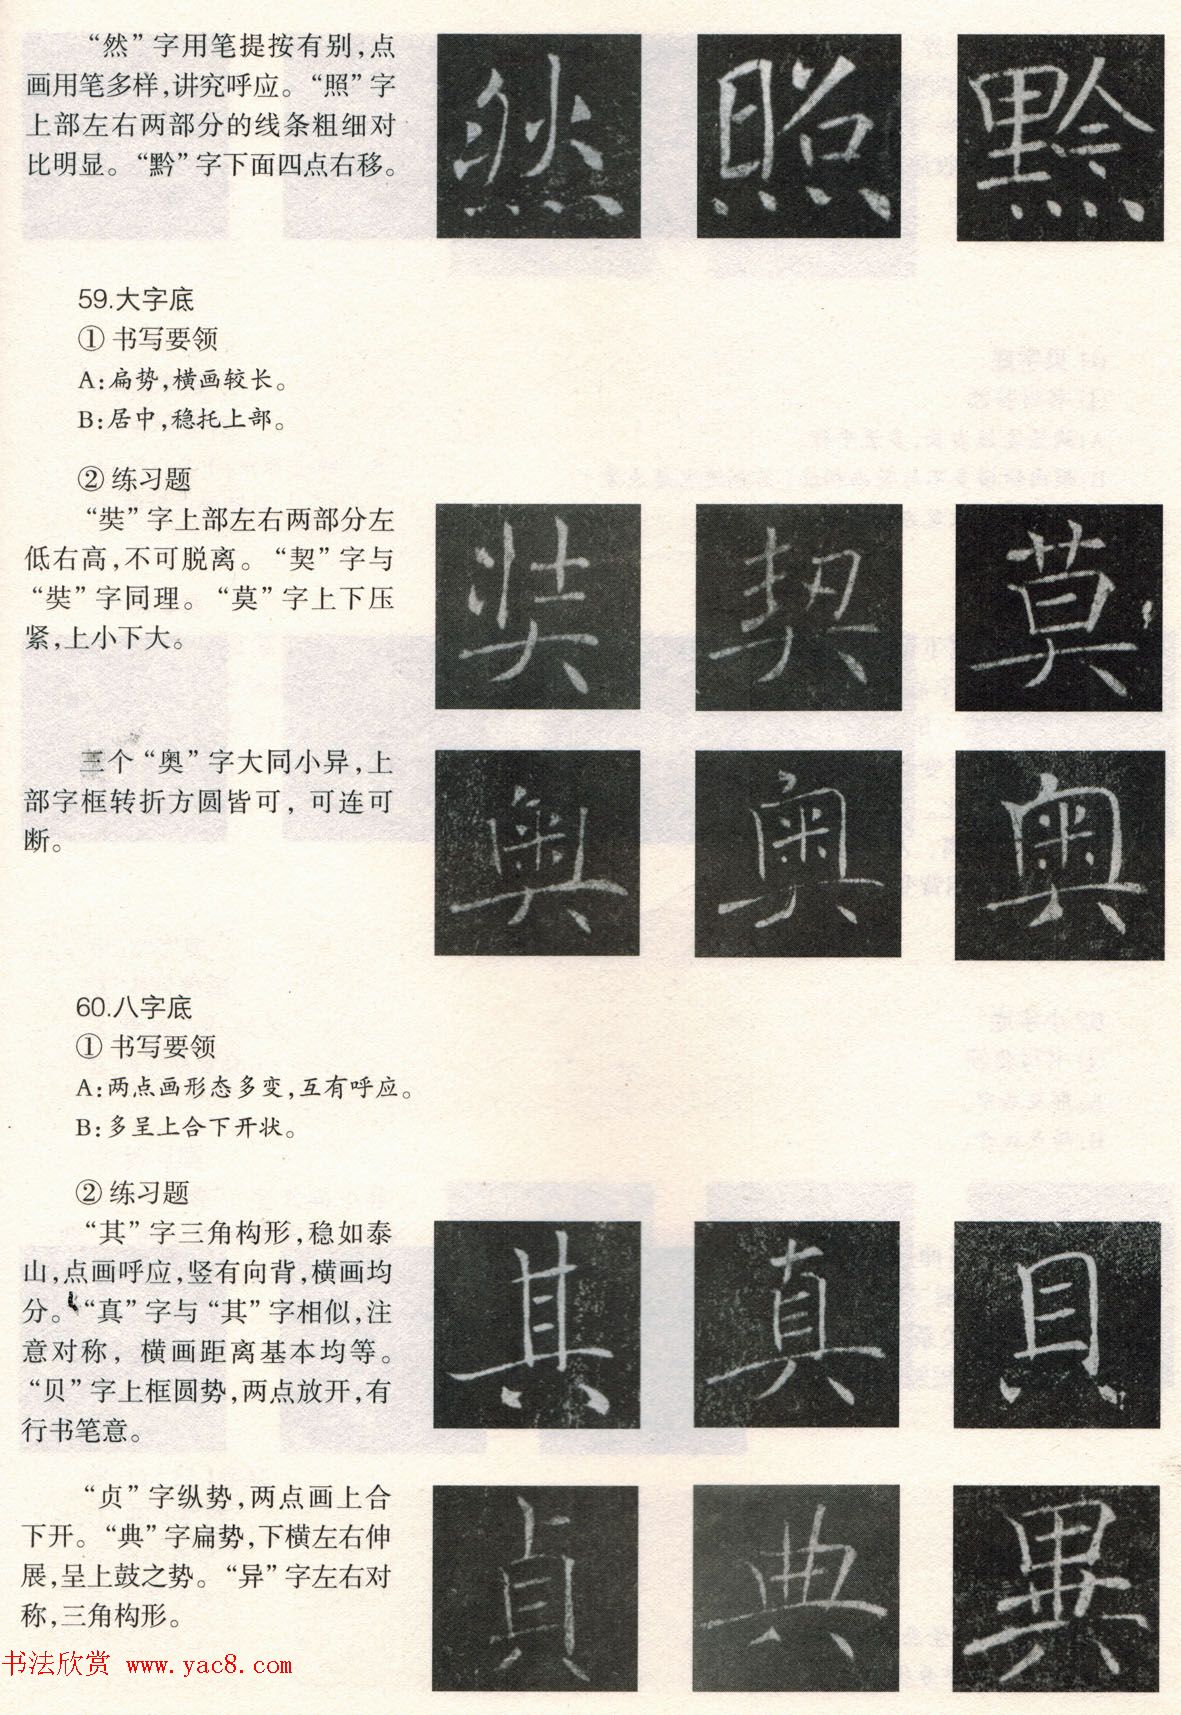 “然”字用笔提按有别,点
画用笔多样,讲究呼应。“照”字
上部左右两部分的线条粗细对
比明显。“黔”字下面四点右移。
然 照 黔
59.大字底
① 书写要领
A:扁势,横画较长。
B:居中,稳托上部。
② 练习题
“奘”字上部左右两部分左
低右高,不可脱离。“契”字与
“奘”字同理。“莫”字上下压
紧,上小下大。
奘 契 莫
三个“奥”字大同小异,上
部字框转折方圆皆可,可连可
断。
奥 奥 奥
60.八字底
① 书写要领
A:两点画形态多变,互有呼应。
B:多呈上合下开状。
② 练习题
“其”字三角构形,稳如泰
山,点画呼应,竖有向背,横画均
分。“真”字与“其”字相似,注
意对称,横画距离基本均等。
“贝”字上框圆势,两点放开,有
行书笔意。
其 真 貝
“贞”字纵势,两点画上合
下开。“典”字扁势,下横左右伸
展,呈上鼓之势。“异”字左右对
称,三角构形。
貞 典 異
书法欣赏 www.yac8.com